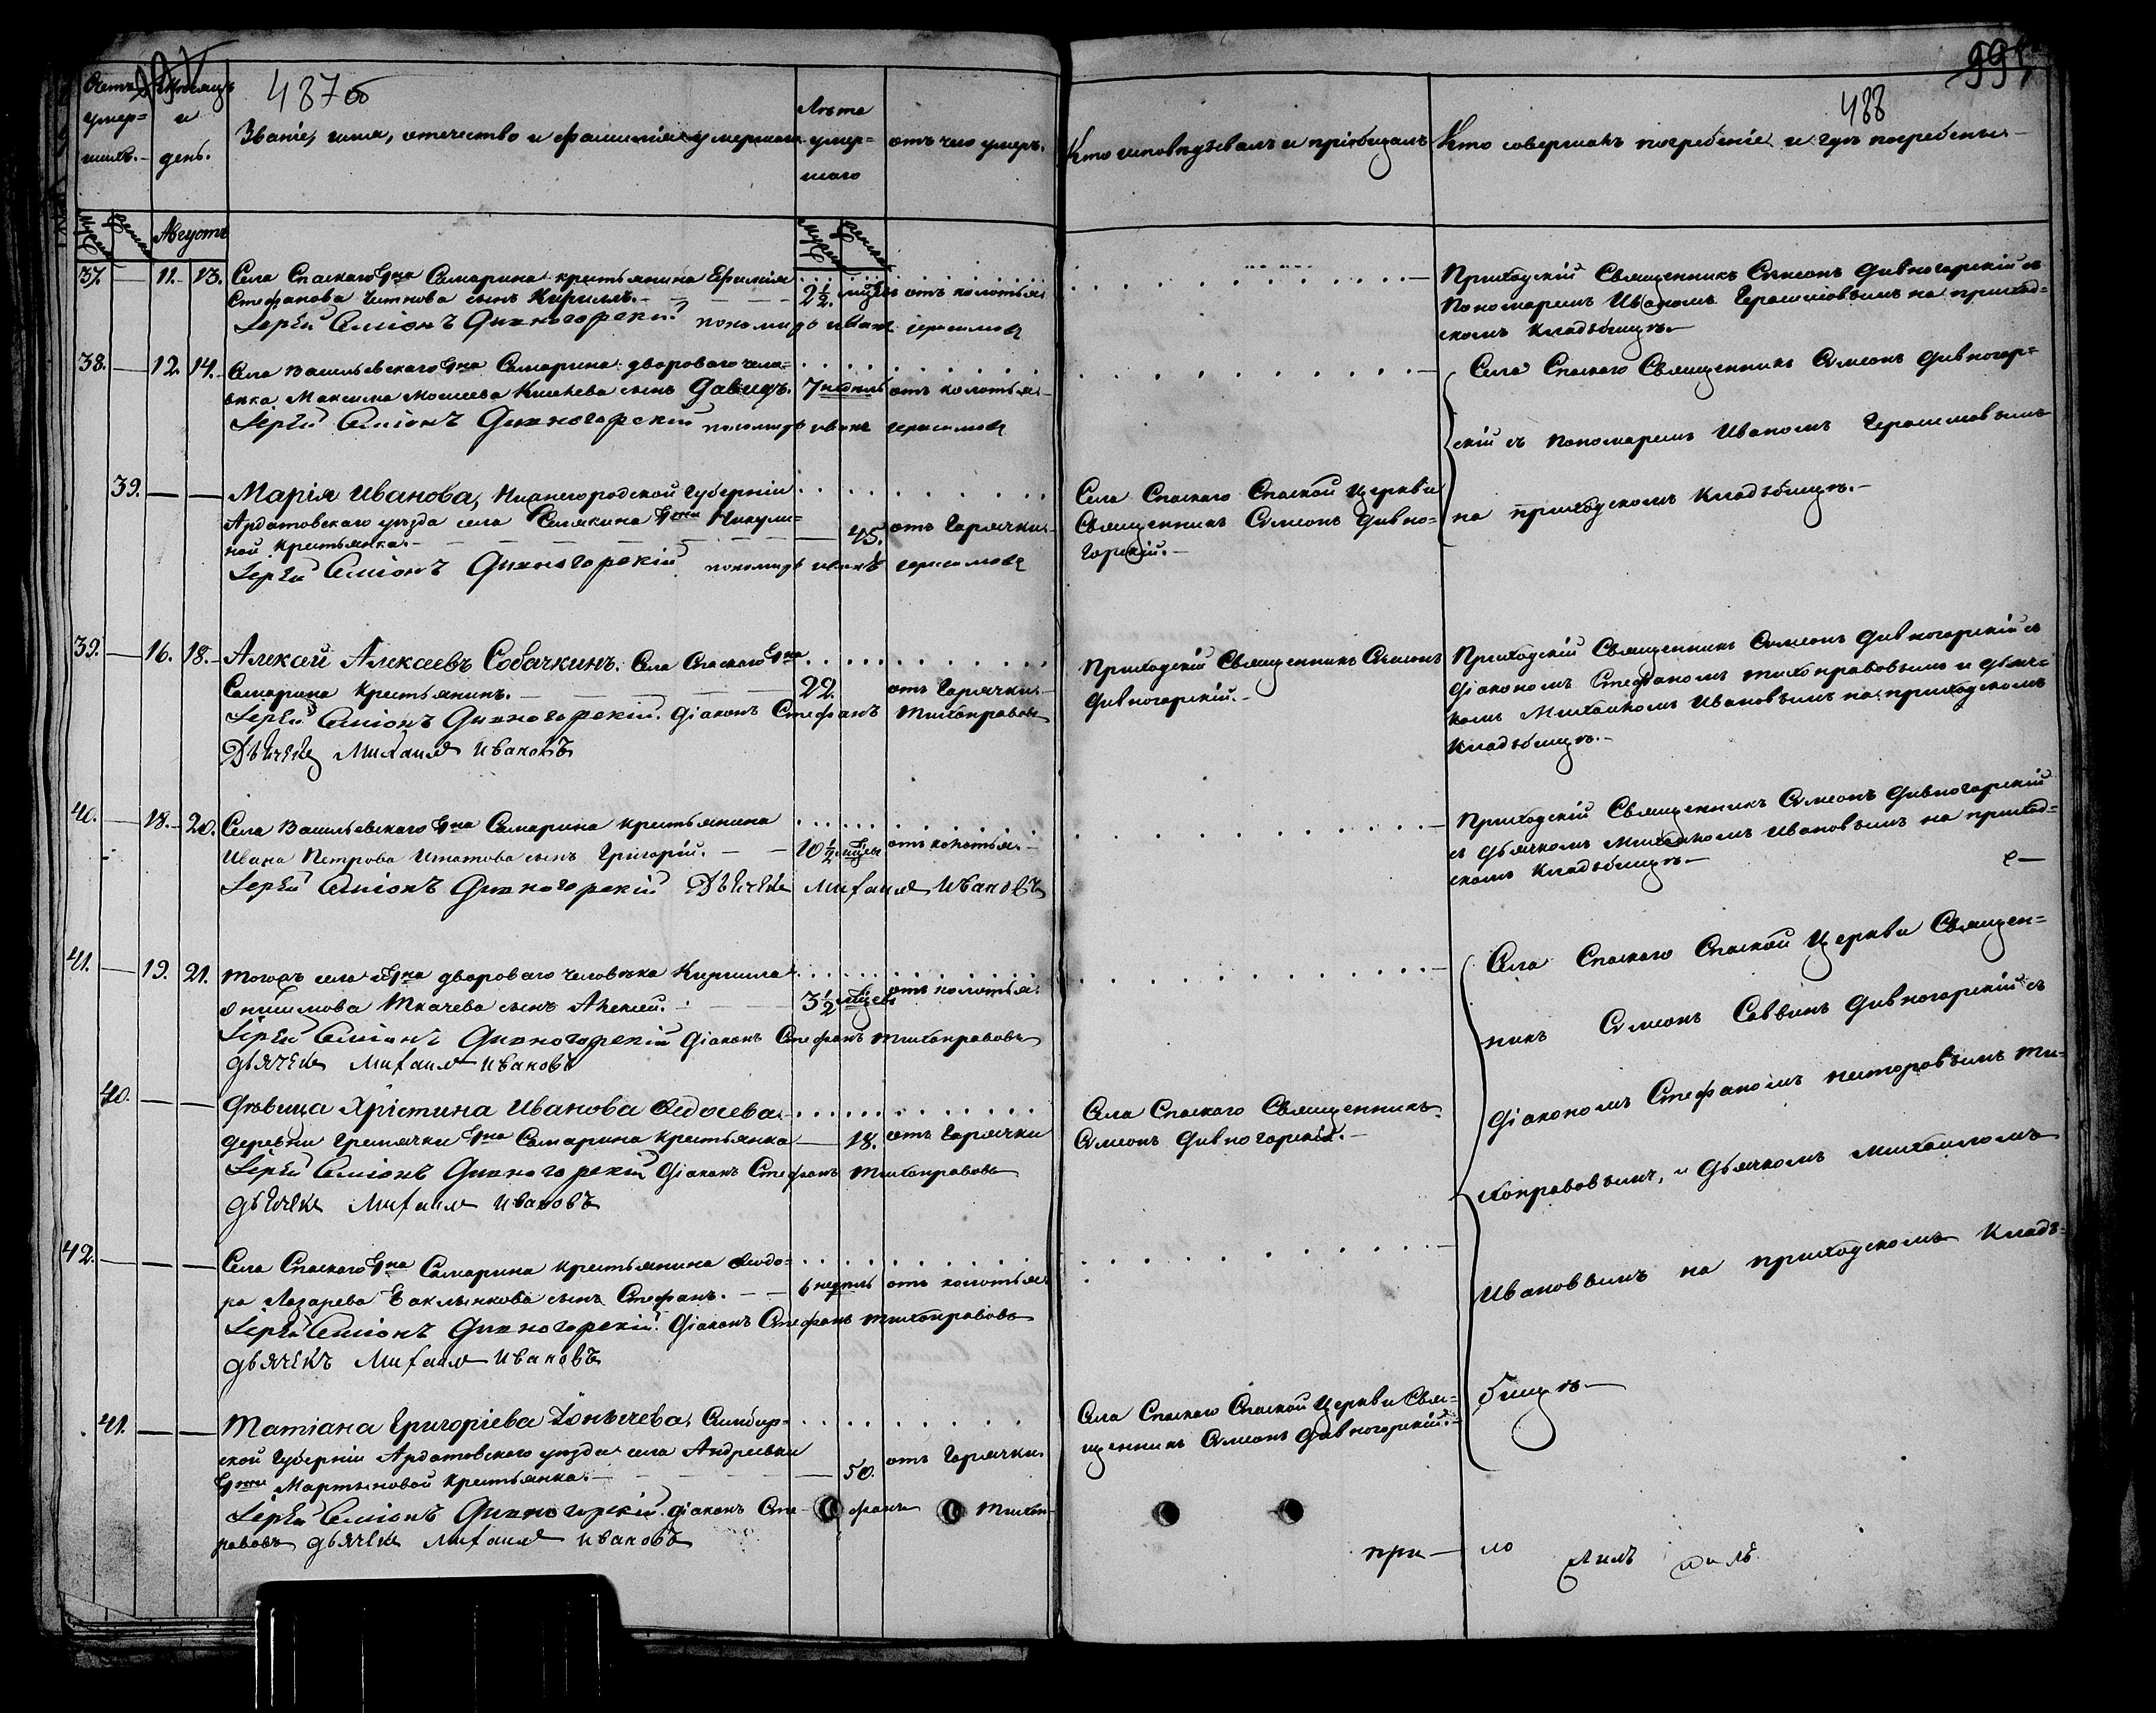 487 об
Счетъ умер=
шихъ.
Мѣсяцъ
и
день.
Званіе, имя, отечество и фамилія умершаго.
Лѣта
умер=
шаго
отъ чего умеръ.
Кто исповѣдывалъ и пріобщалъ
Кто совершалъ погребеніе и гдѣ погребены
488
995
Августъ
37. — 11. 13. Села Спаскаго Гна Самарина крестьянина Ефимія
Стефанова сынъ Кириллъ. — 2½ мѣсяц отъ колотья
Іерей Симіонъ Дивногорскій пономарь иванъ герасимовъ
Приходскій Священникъ Симеонъ Дивногорскій съ
Пономаремъ Иваномъ Герасимовымъ на приход=
скомъ кладбищѣ.—
38. — 12. 14. Села Васильевскаго Гна Самарина двороваго чело=
вѣка Максима Моисеева сынъ Давидъ. 7 недѣль отъ колотья
Іерей Симіонъ Дивногорскій пономарь иванъ герасимовъ
Села Спаскаго Священникъ Симеонъ Дивногор=
скій съ Пономаремъ Иваномъ Герасимовымъ
на приходскомъ Кладбищѣ.—
39. — — Марія Иванова, Нижегородской Губерніи
Ардатовскаго уѣзда села Гжи Никули=
ной Крестьянка. — 45. отъ Горячки
Іерей Симіонъ Дивногорскій пономарь иванъ герасимовъ
Села Спаскаго Спаской Церкви
Священникъ Симеонъ Дивно=
горскій.—
39. — 16. 18. Алексѣй Алексѣевъ Собачкинъ. Села Спаскаго Гна
Самарина Крестьянинъ. — 22. отъ Горячки
Іерей Симіонъ Дивногорскій. Діаконъ Стефанъ Тихонравовъ
Дьячекъ Михаилъ Ивановъ
Приходскій Священникъ Симеонъ
Дивногорскій.—
Приходскій Священникъ Симеонъ Дивногорскій съ
Діакономъ Стефаномъ Тихонравовымъ и Дьяч=
комъ Михаиломъ Ивановымъ на приходскомъ
Кладбищѣ.—
40. — 18. 20. Села Васильевскаго Гна Самарина крестьянина
Ивана Петрова Игнатова сынъ Григорій. — 10½ мѣсяц отъ колотья
Іерей Симіонъ Дивногорскій Дьячекъ Михаилъ Ивановъ
Приходскій Священникъ Симеонъ Дивногорскій
съ Дьячкомъ Михаиломъ Ивановымъ на приход=
скомъ Кладбищѣ—
41. — 19. 21. Тогожъ села Гна двороваго человѣка Кирилла
Онисимова Ткачева сынъ Алексей. 3½ мѣсяц отъ колотья
Іерей Симіонъ Дивногорскій Діаконъ Стефанъ Тихонравовъ
Дьячекъ Михаилъ Ивановъ
Села Спаскаго Спаской Церкви Священ=
никъ Симеонъ Саввинъ Дивногорскій съ
Діакономъ Стефаномъ Несторовымъ Ти=
хонравовымъ, и Дьячкомъ Михаиломъ
Ивановымъ на приходскомъ Кладъ=
бищѣ—
40. — — Дѣвица Христина Иванова Ѳедосеева
деревни Гремячки Гна Самарина Крестьянка — 18. отъ Горячки
Іерей Симіонъ Дивногорскій Діаконъ Стефанъ Тихонравовъ
Дьячекъ Михаилъ Ивановъ
Села Спаскаго Священникъ
Симеонъ Дивногорскій.—
42. — — — Села Спаскаго Гна Самарина крестьянина Ѳеодо=
ра Лазарева Баклынкова сынъ Стефанъ. — 6 недѣль отъ колотья
Іерей Симіонъ Дивногорскій. Діаконъ Стефанъ Тихонравовъ
Дьячекъ Михаилъ Ивановъ
41. — — Татіана Григоріева Симбир=
ской Губерніи Ардатовскаго уѣзда села Андреевки
Гжи Мартыновой Крестьянка. — 50. отъ Горячки
Іерей Симіонъ Дивногорскій. Діаконъ Стефанъ Тихон=
равовъ Дьячекъ Михаилъ Ивановъ
Села Спаскаго Спаской Церкви Свя=
щенникъ Симеонъ Дивногорскій.
при — ло